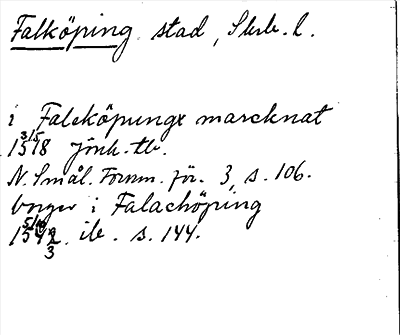 Falköping stad, Skrb. l.
i Falckôpungx marcknat
3/5
1518 Jönk. tb.
N. Smål. Fornm. för. 3, s. 106.
borger i Falachöping
1542 ib. s. 144.
3